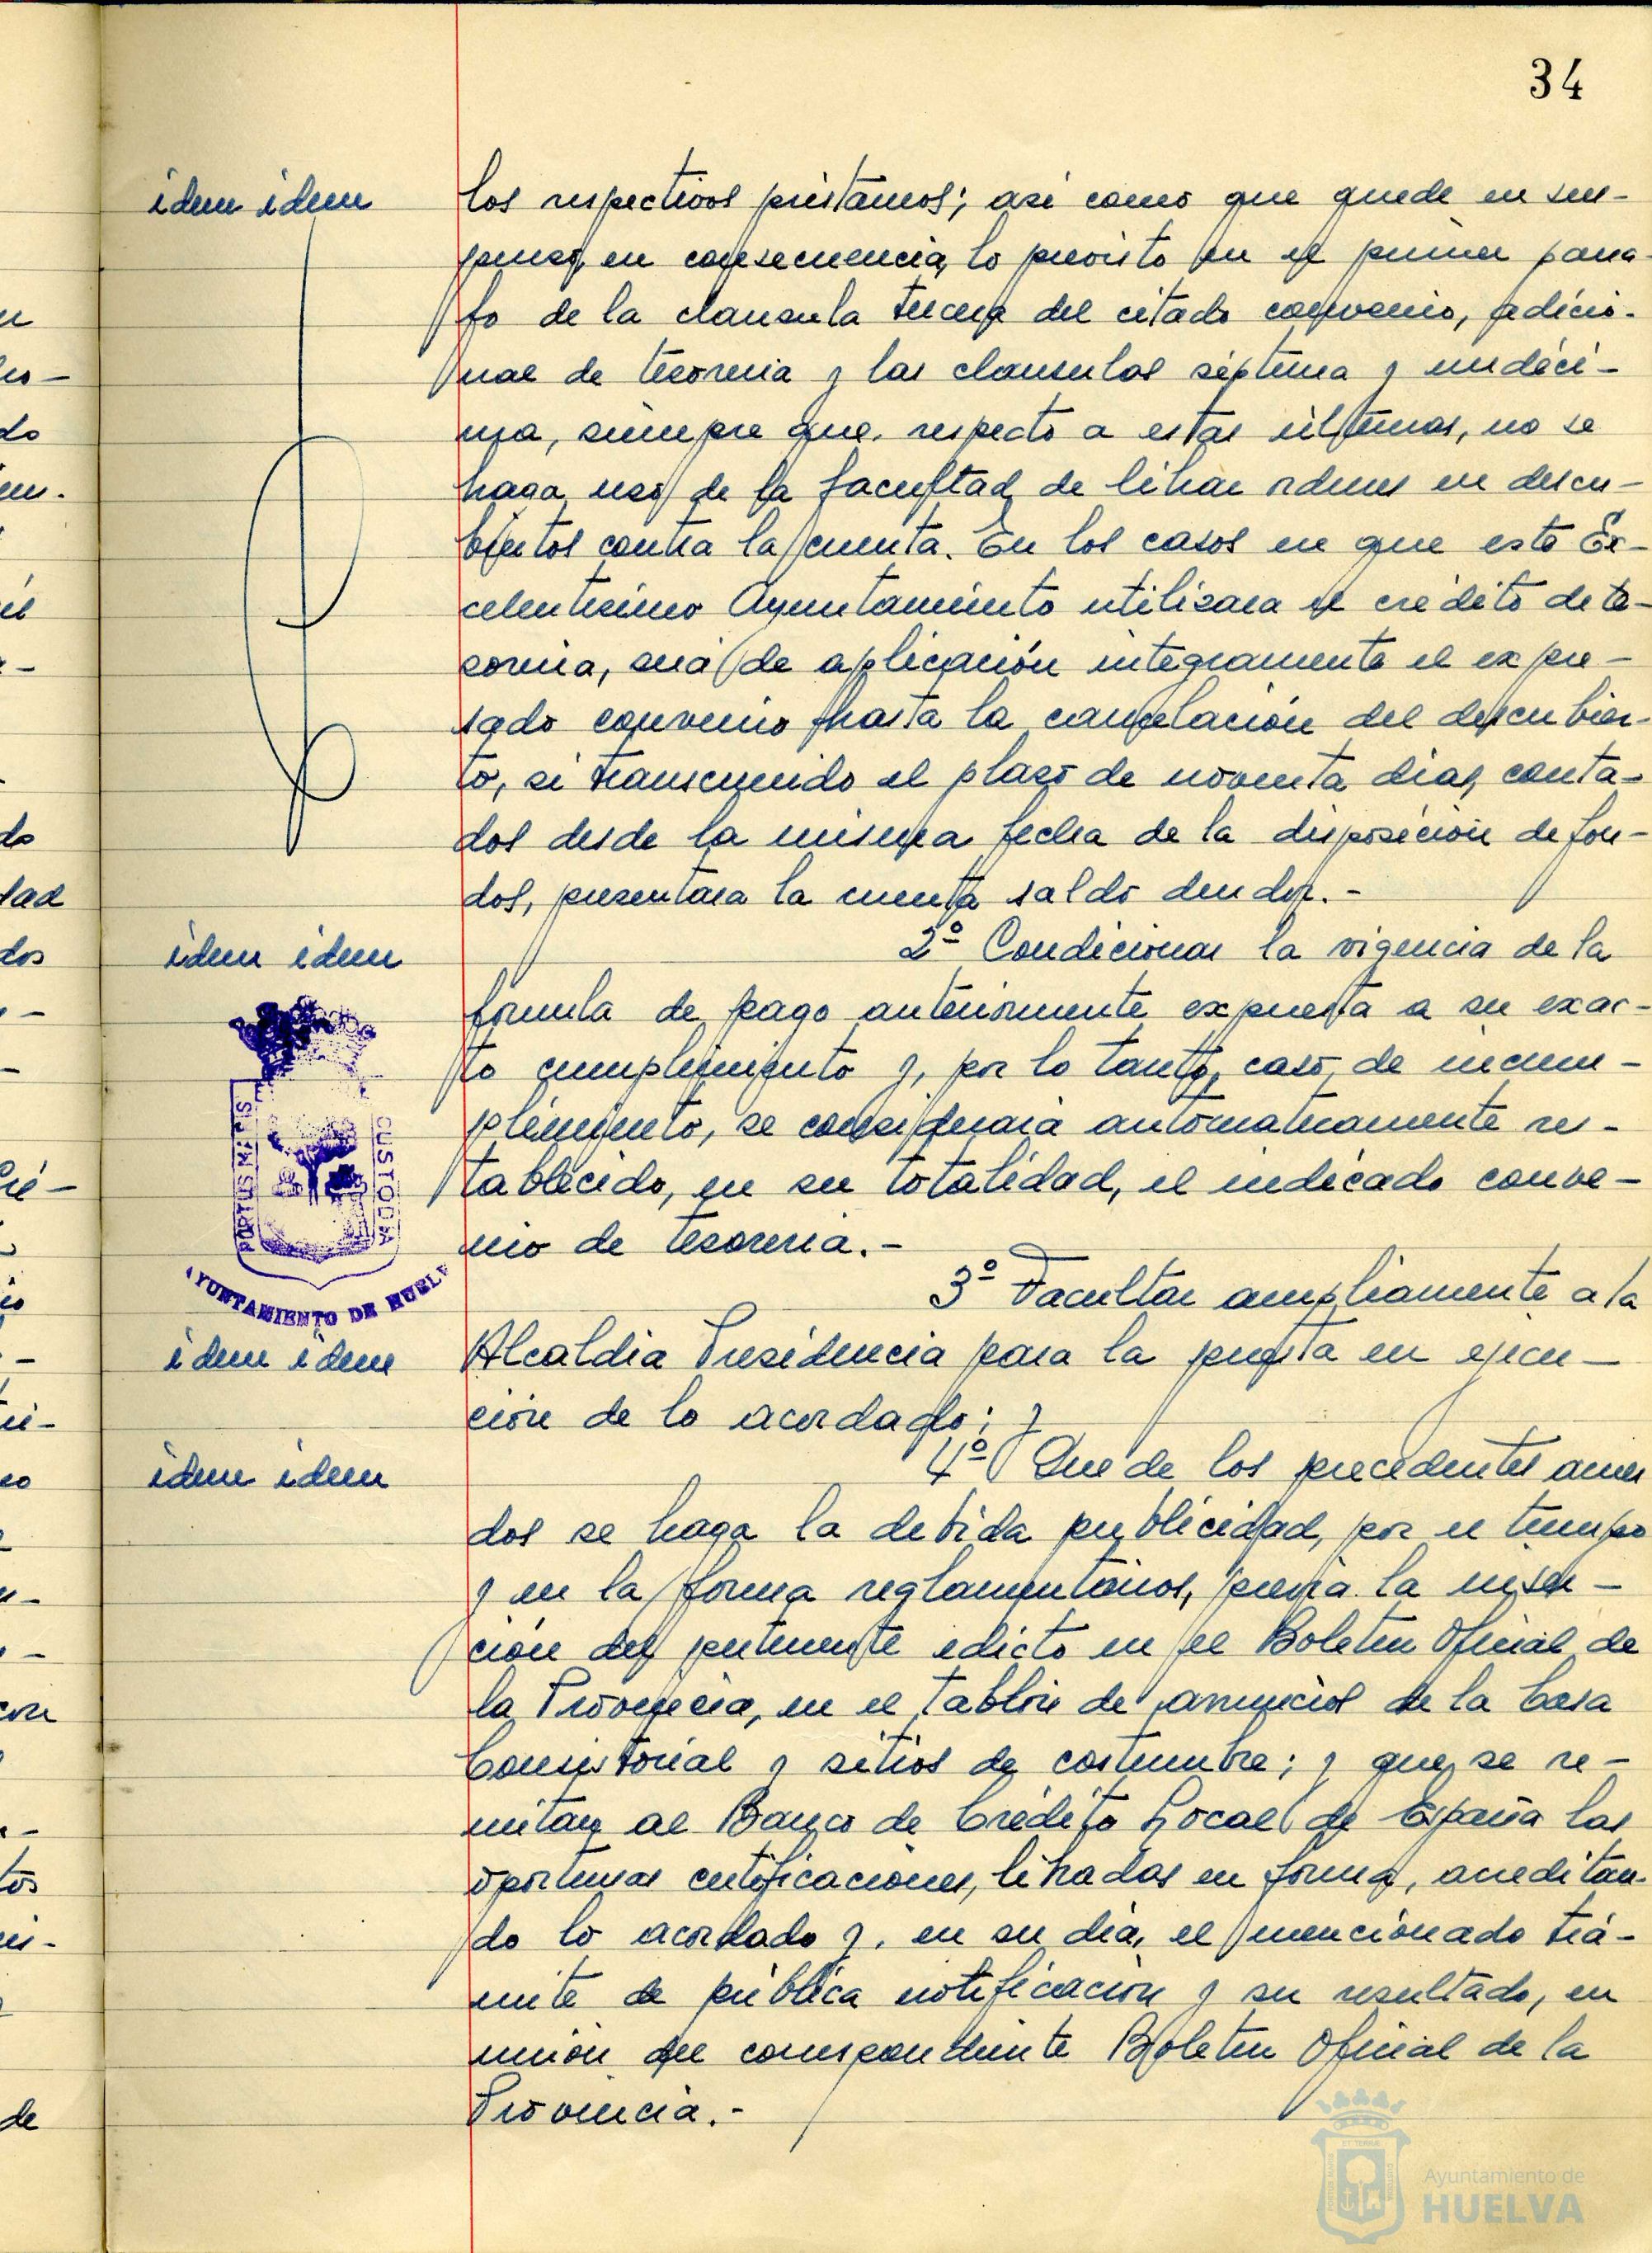 34
idem idem
los respectivos préstamos; asi como que quede en sus-
penso, en consecuencia, lo previsto en el primer parra-
fo de la clausula tercera del citado convenio, adicio-
nal de tesoreria y las clausulas séptima y undéci-
ma, siempre que, respecto a estas últimas, no se
haga uso de la facultad de librar ordenes en descu-
biertos contra la cuenta. En los casos en que este Ex-
celentisimo Ayuntamiento utilizara el crédito de te-
soreria, será de aplicación integramente el expre-
sado convenio hasta la cancelación del descubier-
to, si transcurrido el plazo de noventa dias, conta-
dos desde la misma fecha de la disposición de fon-
dos, presentara la cuenta saldo deudor.-
idem idem
2º Condicionar la vigencia de la
formula de pago anteriormente expuesta a su exac-
to cumplimiento y, por lo tanto, caso de incum-
plimiento, se consideraria automaticamente res-
tablecido, en su totalidad, el indicado conve-
nio de tesoreria.-
PORTUS MARIS
CUSTODIA
AYUNTAMIENTO DE HUELVA
3º Facultar ampliamente a la
idem idem
Alcaldia Presidencia para la puesta en ejecu-
ción de lo acordado; y
idem idem
4º Que de los precedentes acuer
dos se haga la debida publicidad, por el tiempo
y en la forma reglamentarios, previa la inser-
ción del pertinente edicto en el Boletin Oficial de
la Provincia, en el tablón de anuncios de la Casa
Consistorial y sitios de costumbre; y que se re-
mitan al Banco de Crédito Local de España las
oportunas certificaciones, libradas en forma, acreditan-
do lo acordado y, en su dia, el mencionado trá-
mite de pública notificación y su resultado, en
unión del correspondiente Boletin Oficial de la
Provincia.-
Ayuntamiento de
HUELVA